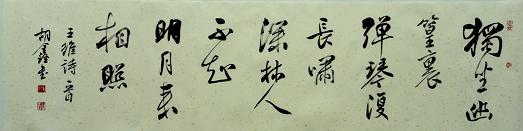 獨坐幽
篁裏
彈琴復
長嘯
深林人
不知
明月来
相照
王維詩一首
胡鑫书